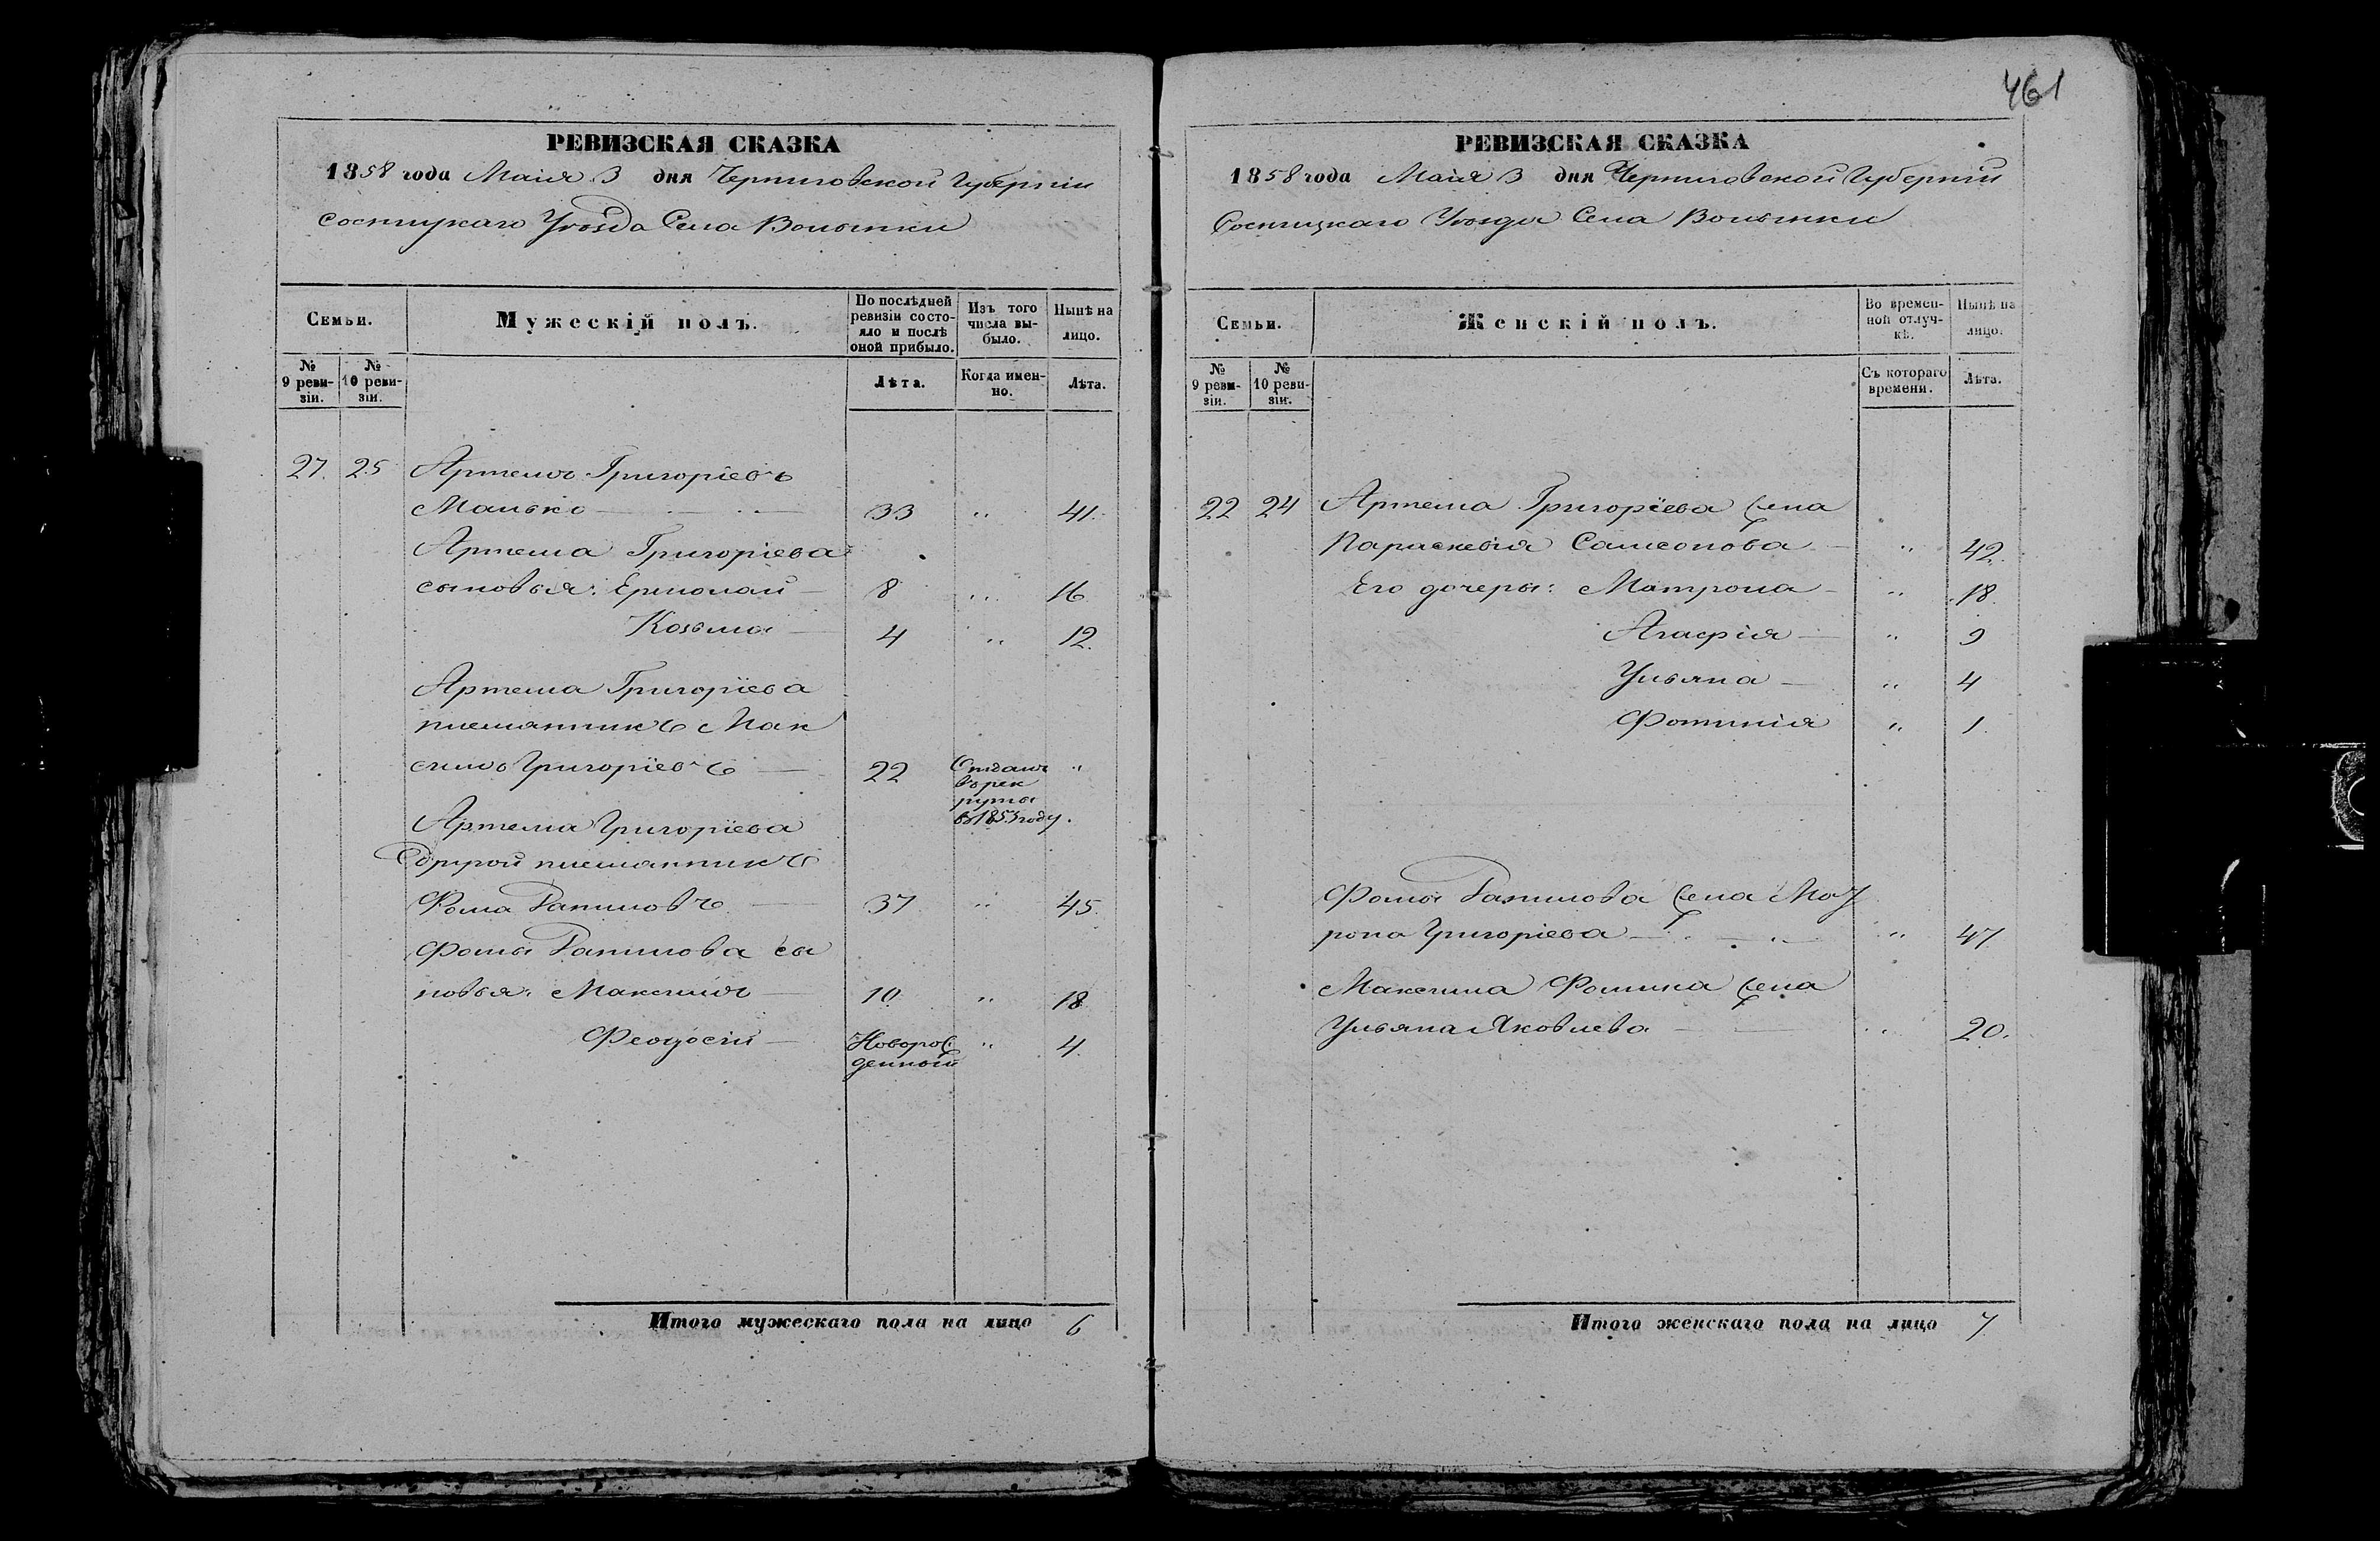 461
РЕВИЗСКАЯ СКАЗКА
1858 года Маія 3 дня Черниговской Губерніи
Сосницкаго Уѣзда Села Волынки
Семьи.
Мужескій полъ.
По послѣдней ревизіи состояло и послѣ оной прибыло.
Изъ того числа выбыло.
Нынѣ на лицо.
№ 9 ревизіи.
№ 10 ревизіи.
Лѣта.
Когда именно.
Лѣта.
27. 25 Артемъ Григоріевъ
Малько 33 " 41.
Артема Григоріева
сыновья: Ермолай 8 " 16
Козьма 4 " 12.
Артема Григоріева
племянникъ Мак
симъ Григоріевъ 22 Отданъ "
въ рек
руты
въ 1853 году.
Артема Григоріева
другой племянникъ
Фома Даниловъ 37 " 45.
Фомы Данилова сы
новья: Максимъ 10 " 18
Феодосій Новорож " 4.
денный
Итого мужескаго пола на лицо 6
РЕВИЗСКАЯ СКАЗКА
1858 года Маія 3 дня Черниговской Губерніи
Сосницкаго Уѣзда Села Волынки
Семьи.
Женскій полъ.
Во временной отлучкѣ.
Нынѣ на лицо.
№ 9 ревизіи.
№ 10 ревизіи.
Съ котораго времени.
Лѣта.
22 24 Артема Григоріева жена
Параскевія Самсонова " 42.
Его дочеры: Матрона " 18.
Агафія " 9
Ульяна " 4
Фотинія " 1.
Фомы Данилова жена Мат
рона Григоріева " 47
Максима Фомина жена
Ульяна Яковлева " 20.
Итого женскаго пола на лицо 7